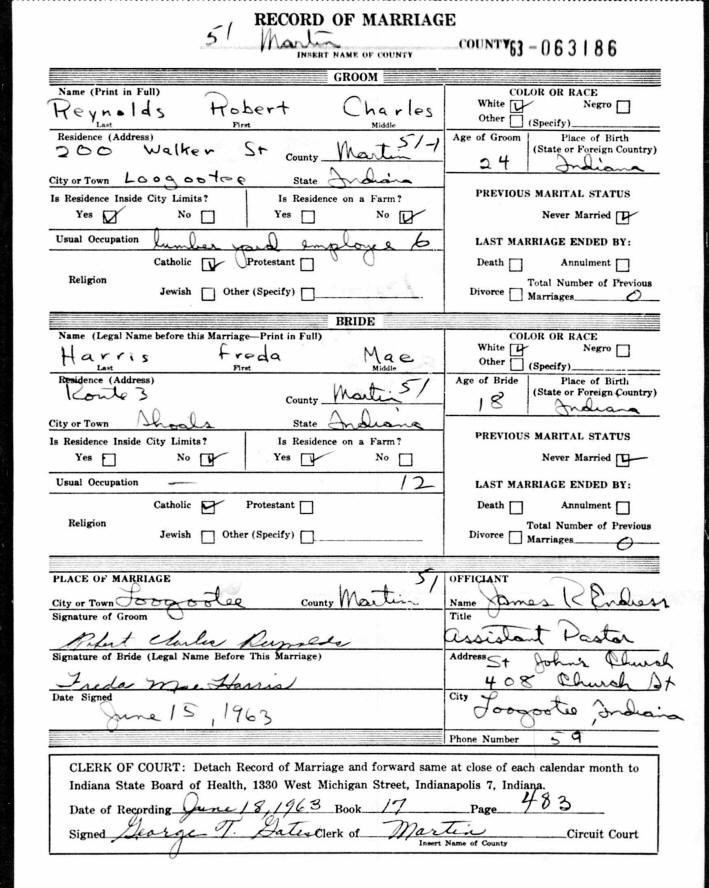 RECORD OF MARRIAGE
51 Martin COUNTY 63-063186
INSERT NAME OF COUNTY
GROOM
Name (Print in Full) COLOR OR RACE
Reynolds Robert Charles White ☑ Negro ☐
Last First Middle Other ☐ (Specify)
Residence (Address) Age of Groom Place of Birth
200 Walker St County Martin 51-1 (State or Foreign Country)
24 Indiana
City or Town Loogootee State Indiana
Is Residence Inside City Limits? Is Residence on a Farm? PREVIOUS MARITAL STATUS
Yes ☑ No ☐ Yes ☐ No ☑ Never Married ☑
Usual Occupation lumber yard employee 6 LAST MARRIAGE ENDED BY:
Catholic ☑ Protestant ☐ Death ☐ Annulment ☐
Religion Total Number of Previous
Jewish ☐ Other (Specify) ☐ Divorce ☐ Marriages 0
BRIDE
Name (Legal Name before this Marriage—Print in Full) COLOR OR RACE
Harris Freda Mae White ☑ Negro ☐
Last First Middle Other ☐ (Specify)
Residence (Address) Age of Bride Place of Birth
Route 3 County Martin 51 (State or Foreign Country)
18 Indiana
City or Town Shoals State Indiana
Is Residence Inside City Limits? Is Residence on a Farm? PREVIOUS MARITAL STATUS
Yes ☐ No ☑ Yes ☑ No ☐ Never Married ☑
Usual Occupation — 12 LAST MARRIAGE ENDED BY:
Catholic ☑ Protestant ☐ Death ☐ Annulment ☐
Religion Total Number of Previous
Jewish ☐ Other (Specify) ☐ Divorce ☐ Marriages 0
PLACE OF MARRIAGE 51 OFFICIANT
City or Town Loogootee County Martin Name James R Endress
Signature of Groom Title
Robert Charles Reynolds Assistant Pastor
Signature of Bride (Legal Name Before This Marriage) Address St John's Church
Freda Mae Harris 408 Church St
Date Signed City
June 15, 1963 Loogootee, Indiana
Phone Number 59
CLERK OF COURT: Detach Record of Marriage and forward same at close of each calendar month to
Indiana State Board of Health, 1330 West Michigan Street, Indianapolis 7, Indiana.
Date of Recording June 18, 1963 Book 17 Page 483
Signed George T. Gates Clerk of Martin Circuit Court
Insert Name of County